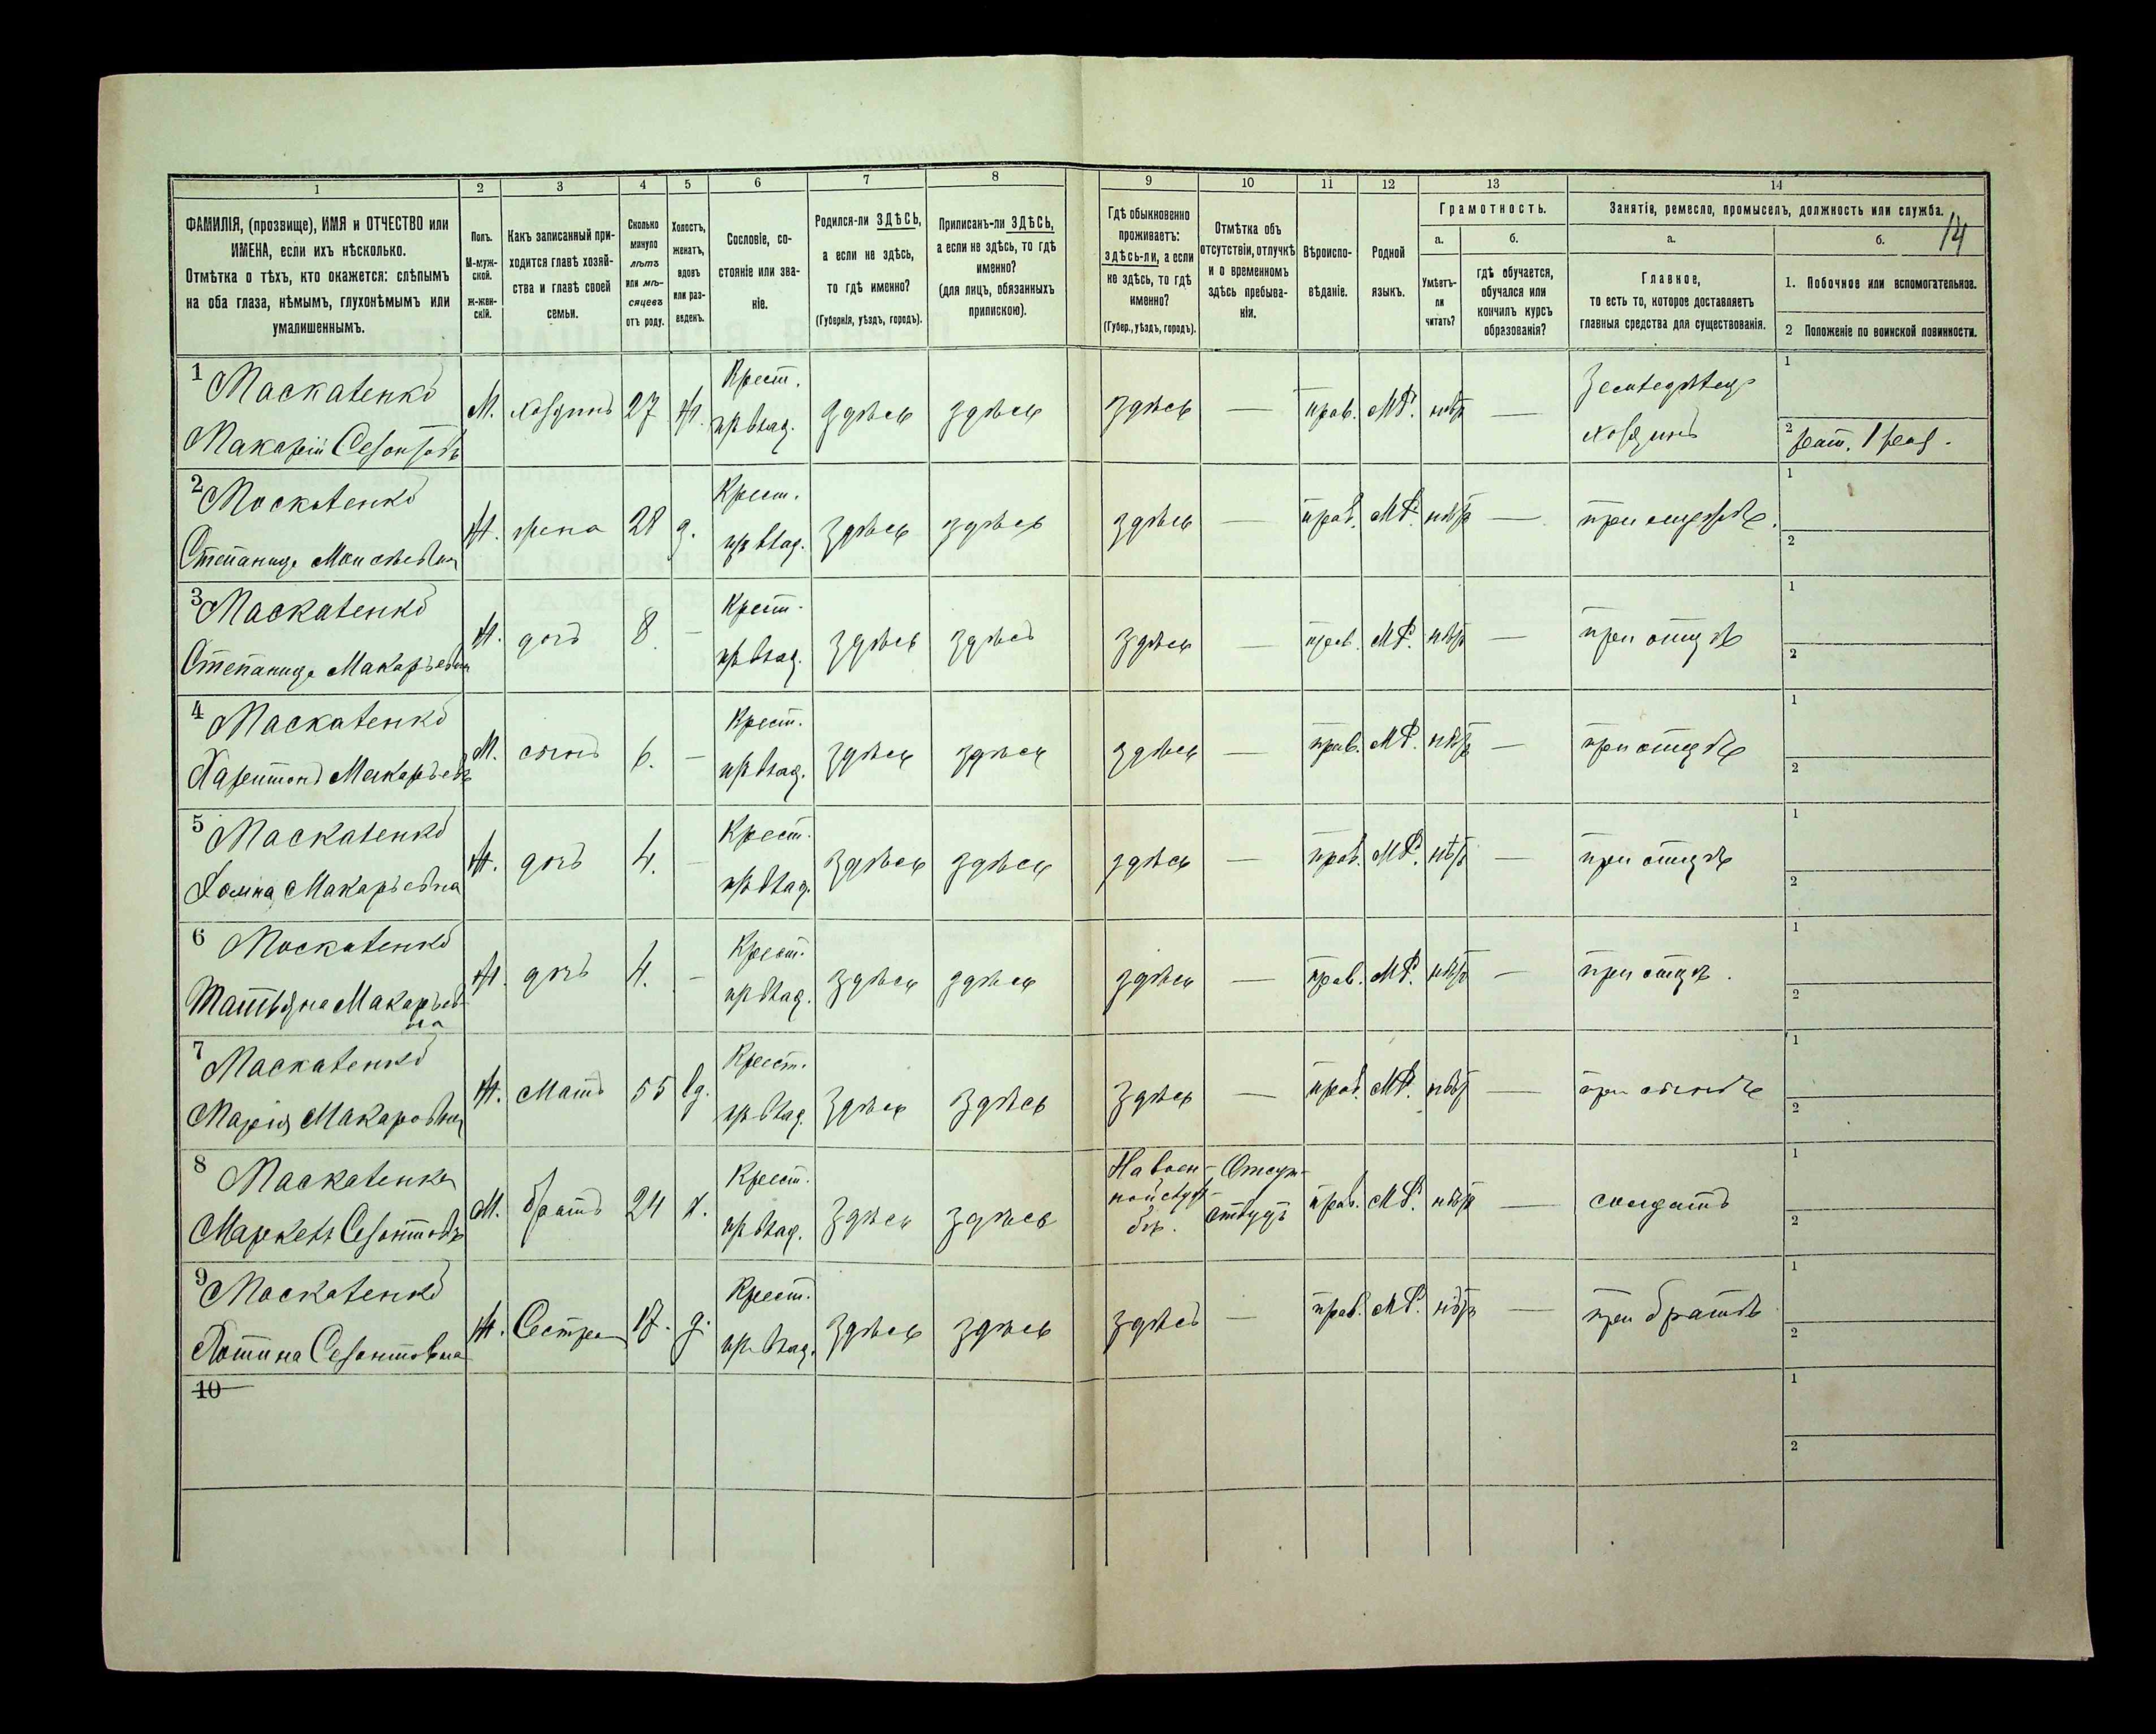 1 2 3 4 5 6 7 8 9 10 11 12 13 14
ФАМИЛІЯ, (прозвище), ИМЯ и ОТЧЕСТВО или
ИМЕНА, если ихъ нѣсколько.
Отмѣтка о тѣхъ, кто окажется: слѣпымъ
на оба глаза, нѣмымъ, глухонѣмымъ или
умалишеннымъ.
Полъ.
М-муж-
ской.
Ж-жен-
скій.
Какъ записанный при-
ходится главѣ хозяй-
ства и главѣ своей
семьи.
Сколько
минуло
лѣтъ
или мѣ-
сяцевъ
отъ роду.
Холостъ,
женатъ,
вдовъ
или раз-
веденъ.
Сословіе, со-
стояніе или зва-
ніе.
Родился-ли ЗДѢСЬ,
а если не здѣсь,
то гдѣ именно?
(Губернія, уѣздъ, городъ).
Приписанъ-ли ЗДѢСЬ,
а если не здѣсь, то гдѣ
именно?
(для лицъ, обязанныхъ
припискою).
Гдѣ обыкновенно
проживаетъ:
здѣсь-ли, а если
не здѣсь, то гдѣ
именно?
(Губер., уѣздъ, городъ).
Отмѣтка объ
отсутствіи, отлучкѣ
и о временномъ
здѣсь пребыва-
ніи.
Вѣроиспо-
вѣданіе.
Родной
языкъ.
Грамотность.
а.
Умѣетъ-
ли
читать?
б.
гдѣ обучается,
обучался или
кончилъ курсъ
образованія?
Занятія, ремесло, промыселъ, должность или служба.
14
а.
Главное,
то есть то, которое доставляетъ
главныя средства для существованія.
б.
1. Побочное или вспомогательное.
2 Положеніе по воинской повинности.
1 Маскаленко
Макарій
М. хозяинъ 27 ж. Крест. здѣсь здѣсь здѣсь — прав. МР. нѣтъ —
хозяинъ
1
2
2 Маскаленко
Степанида
Ж. жена 28 Крест. здѣсь здѣсь здѣсь — прав. МР. нѣтъ —
1
2
3 Маскаленко
Степанида Макарьевна
Ж. дочь 8 — Крест. здѣсь здѣсь здѣсь — прав. МР. нѣтъ — при отцѣ
1
2
4 Маскаленко
Харитонъ Макарьевъ
М. сынъ 6. — Крест. здѣсь здѣсь здѣсь — прав. МР. нѣтъ — при отцѣ
1
2
5 Маскаленко
Домна Макарьевна
Ж. дочь 4. — Крест. здѣсь здѣсь здѣсь — прав. МР. нѣтъ — при отцѣ
1
2
6 Маскаленко
Татьяна Макарьев
на
Ж. дочь 4. — Крест. здѣсь здѣсь здѣсь — прав. МР. нѣтъ — при отцѣ.
1
2
7 Маскаленко
Марія Макаровна
Ж. мать 55 вд. Крест. здѣсь здѣсь здѣсь — прав. МР. нѣтъ — при сынѣ
1
2
8 Маскаленко
М. братъ 24 х. Крест. здѣсь здѣсь На воен-
ной служ-
бѣ.
прав. МР. нѣтъ — солдатъ
1
2
9 Маскаленко
Ж. Сестра Крест. здѣсь здѣсь здѣсь — прав. МР. нѣтъ — при братѣ
1
2
10
1
2